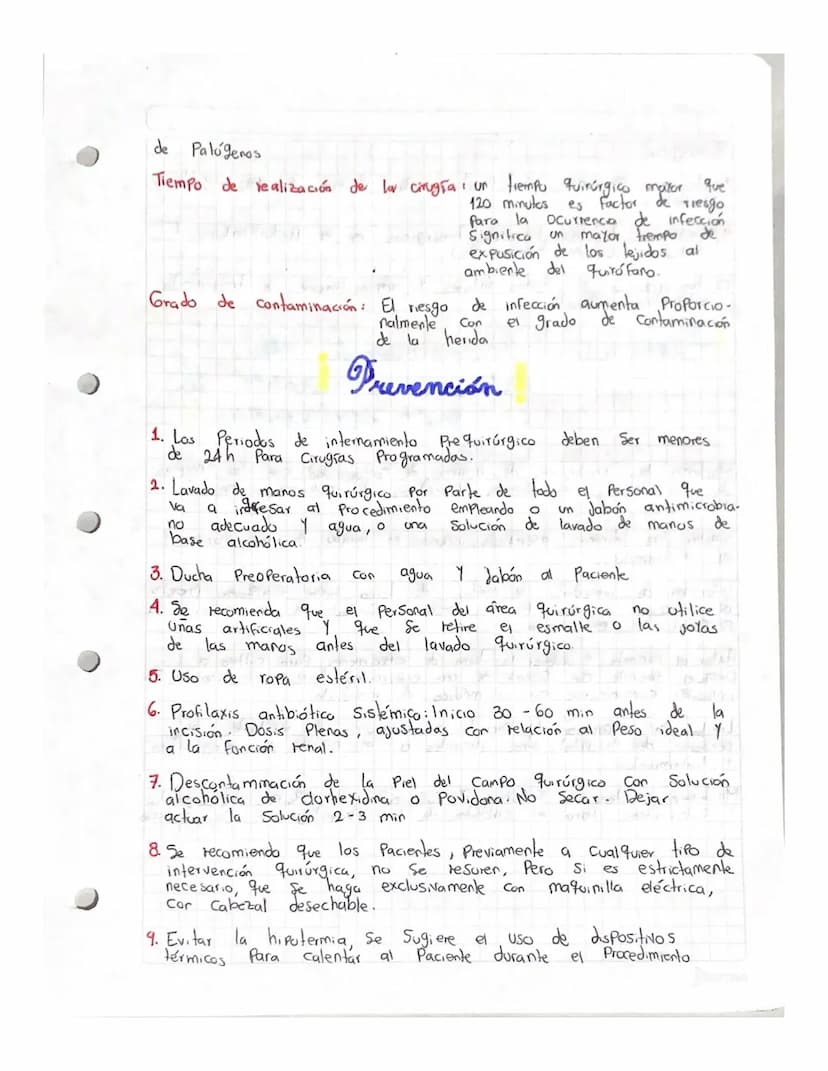 de Palógenos
Tiempo de realización de la cirugía: un tiempo quirúrgico mayor que
120 minutos es factor de riesgo
para la ocurrenca de infección
Significa un mayor tiempo de
exposición de los tejidos al
ambiente del quirófano.
Grado de contaminación: El riesgo de infección aumenta Proporcio-
nalmente con el grado de contaminación
de la herida
Prevención
1. Los Periodos de internamiento Prequirúrgico deben Ser menores
de 24h Para Cirugías Programadas.
2. Lavado de manos quirúrgico Por Parte de todo el Personal que
va a ingresar al Procedimiento empleando o un Jabón antimicrobia-
no adecuado y agua, o una Solución de lavado de manos de
base alcohólica.
3. Ducha Preoperatoria con agua y Jabón al Paciente
4. Se recomienda que el Personal del área quirúrgica no utilice
uñas artificiales y que Se retire el esmalte o las joyas
de las manos antes del lavado quirúrgico.
5. Uso de ropa estéril.
6. Profilaxis antibiótico Sistémico: Inicio 30 - 60 min antes de la
incisión. Dosis Plenas, ajustadas con relación al Peso ideal y
a la función renal.
7. Descontaminación de la Piel del Campo quirúrgico con Solución
alcohólica de clorhexidina o Povidona. No Secar. Dejar
actuar la Solución 2-3 min
8. Se recomiendo que los Pacientes, Previamente a Cualquier tipo de
intervención quirúrgica, no Se resuren, Pero Si es estrictamente
necesario, que Se haga exclusivamente con maquinilla eléctrica,
con Cabezal desechable.
9. Evitar la hipotermia, Se Sugiere el uso de dispositivos
térmicos Para calentar al Paciente durante el Procedimiento